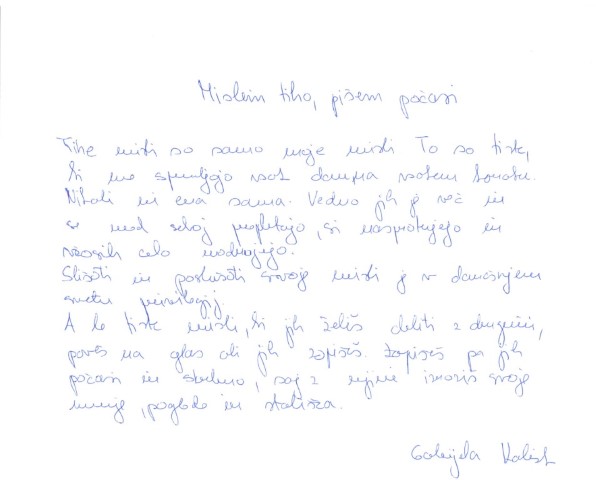 Mislim tiho, pišem počasi
Tihe misli so samo moje misli. To so tiste,
ki me spremljajo vsak dan, na vsakem koraku.
Nikoli ni ena sama. Vedno jih je več in
se med seboj prepletajo, si nasprotujejo in
včasih celo nadlegujejo.
Slišati in poslušati svoje misli je v današnjem
svetu privilegij.
A le tiste misli, ki jih želiš deliti z drugimi,
poveš na glas ali jih zapišeš. Zapišeš pa jih
počasi in skrbno, saj z njimi izraziš svoje
mnenje, poglede in stališča.
Gabrijela